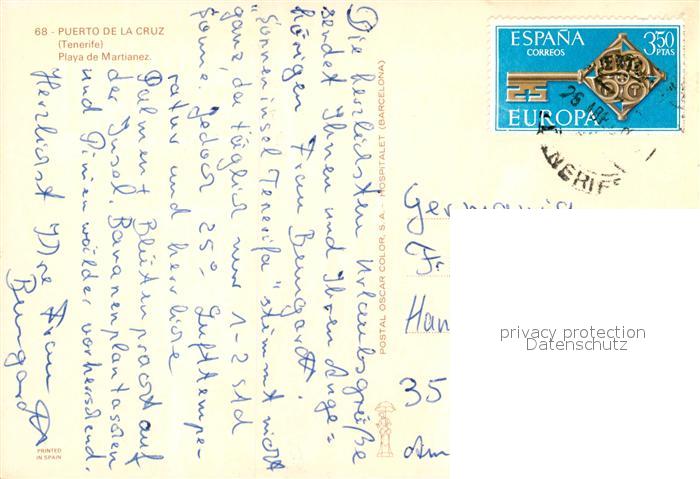 68 - PUERTO DE LA CRUZ
(Tenerife)
Playa de Martianez.
Die herzlichsten Urlaubsgrüße
sendet Ihnen und Ihren Ange=
hörigen Frau Bungardt.
"Sonneninsel Tenerifa" stimmt nicht
ganz, da täglich nur 1-2 Std
Sonne. Jedoch 25° Lufttempe-
ratur und herrliche
Palmen + Blütenpracht auf
der Insel. Bananenplantaschen
und Pinienwälder vorherrschend.
Herzlichst Ihre Frau
Bungardt
PRINTED
IN SPAIN
POSTAL OSCAR COLOR, S. A. - HOSPITALET (BARCELONA)
ESPAÑA
CORREOS
3,50
PTAS
EUROPA
Germania
Fr
Han
35
Am
privacy protection
Datenschutz